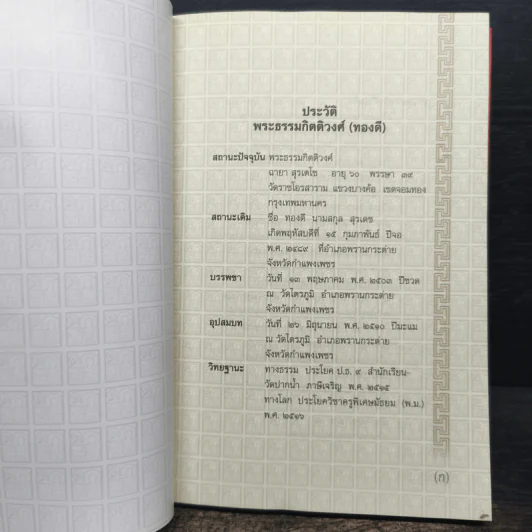 ประวัติ
พระธรรมกิตติวงศ์ (ทองดี)
สถานะปัจจุบัน พระธรรมกิตติวงศ์
ฉายา สุรเตโช อายุ ๖๐ พรรษา ๓๙
วัดราชโอรสาราม แขวงบางค้อ เขตจอมทอง
กรุงเทพมหานคร
สถานะเดิม ชื่อ ทองดี นามสกุล สุรเดช
เกิดพฤหัสบดีที่ ๑๕ กุมภาพันธ์ ปีจอ
พ.ศ. ๒๔๘๙ ที่อำเภอพรานกระต่าย
จังหวัดกำแพงเพชร
บรรพชา วันที่ ๑๓ พฤษภาคม พ.ศ. ๒๕๐๓ ปีชวด
ณ วัดไตรภูมิ อำเภอพรานกระต่าย
จังหวัดกำแพงเพชร
อุปสมบท วันที่ ๒๖ มิถุนายน พ.ศ. ๒๕๑๐ ปีมะแม
ณ วัดไตรภูมิ อำเภอพรานกระต่าย
จังหวัดกำแพงเพชร
วิทยฐานะ ทางธรรม ประโยค ป.ธ. ๙ สำนักเรียน-
วัดปากน้ำ ภาษีเจริญ พ.ศ. ๒๕๑๕
ทางโลก ประโยควิชาครูพิเศษมัธยม (พ.ม.)
พ.ศ. ๒๕๑๖
(ก)